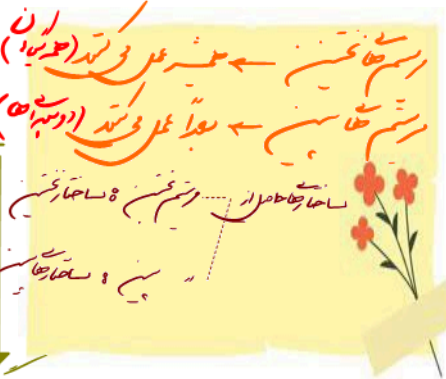 مریستم های نخستین ← همیشه عمل می کنند (همه گیاهان)
مریستم های پسین ← بعداً عمل می کنند (دولپه ای ها
ساختارهای حاصل از مریستم نخستین : ساختار نخستین
" پسین : ساختارهای پسین